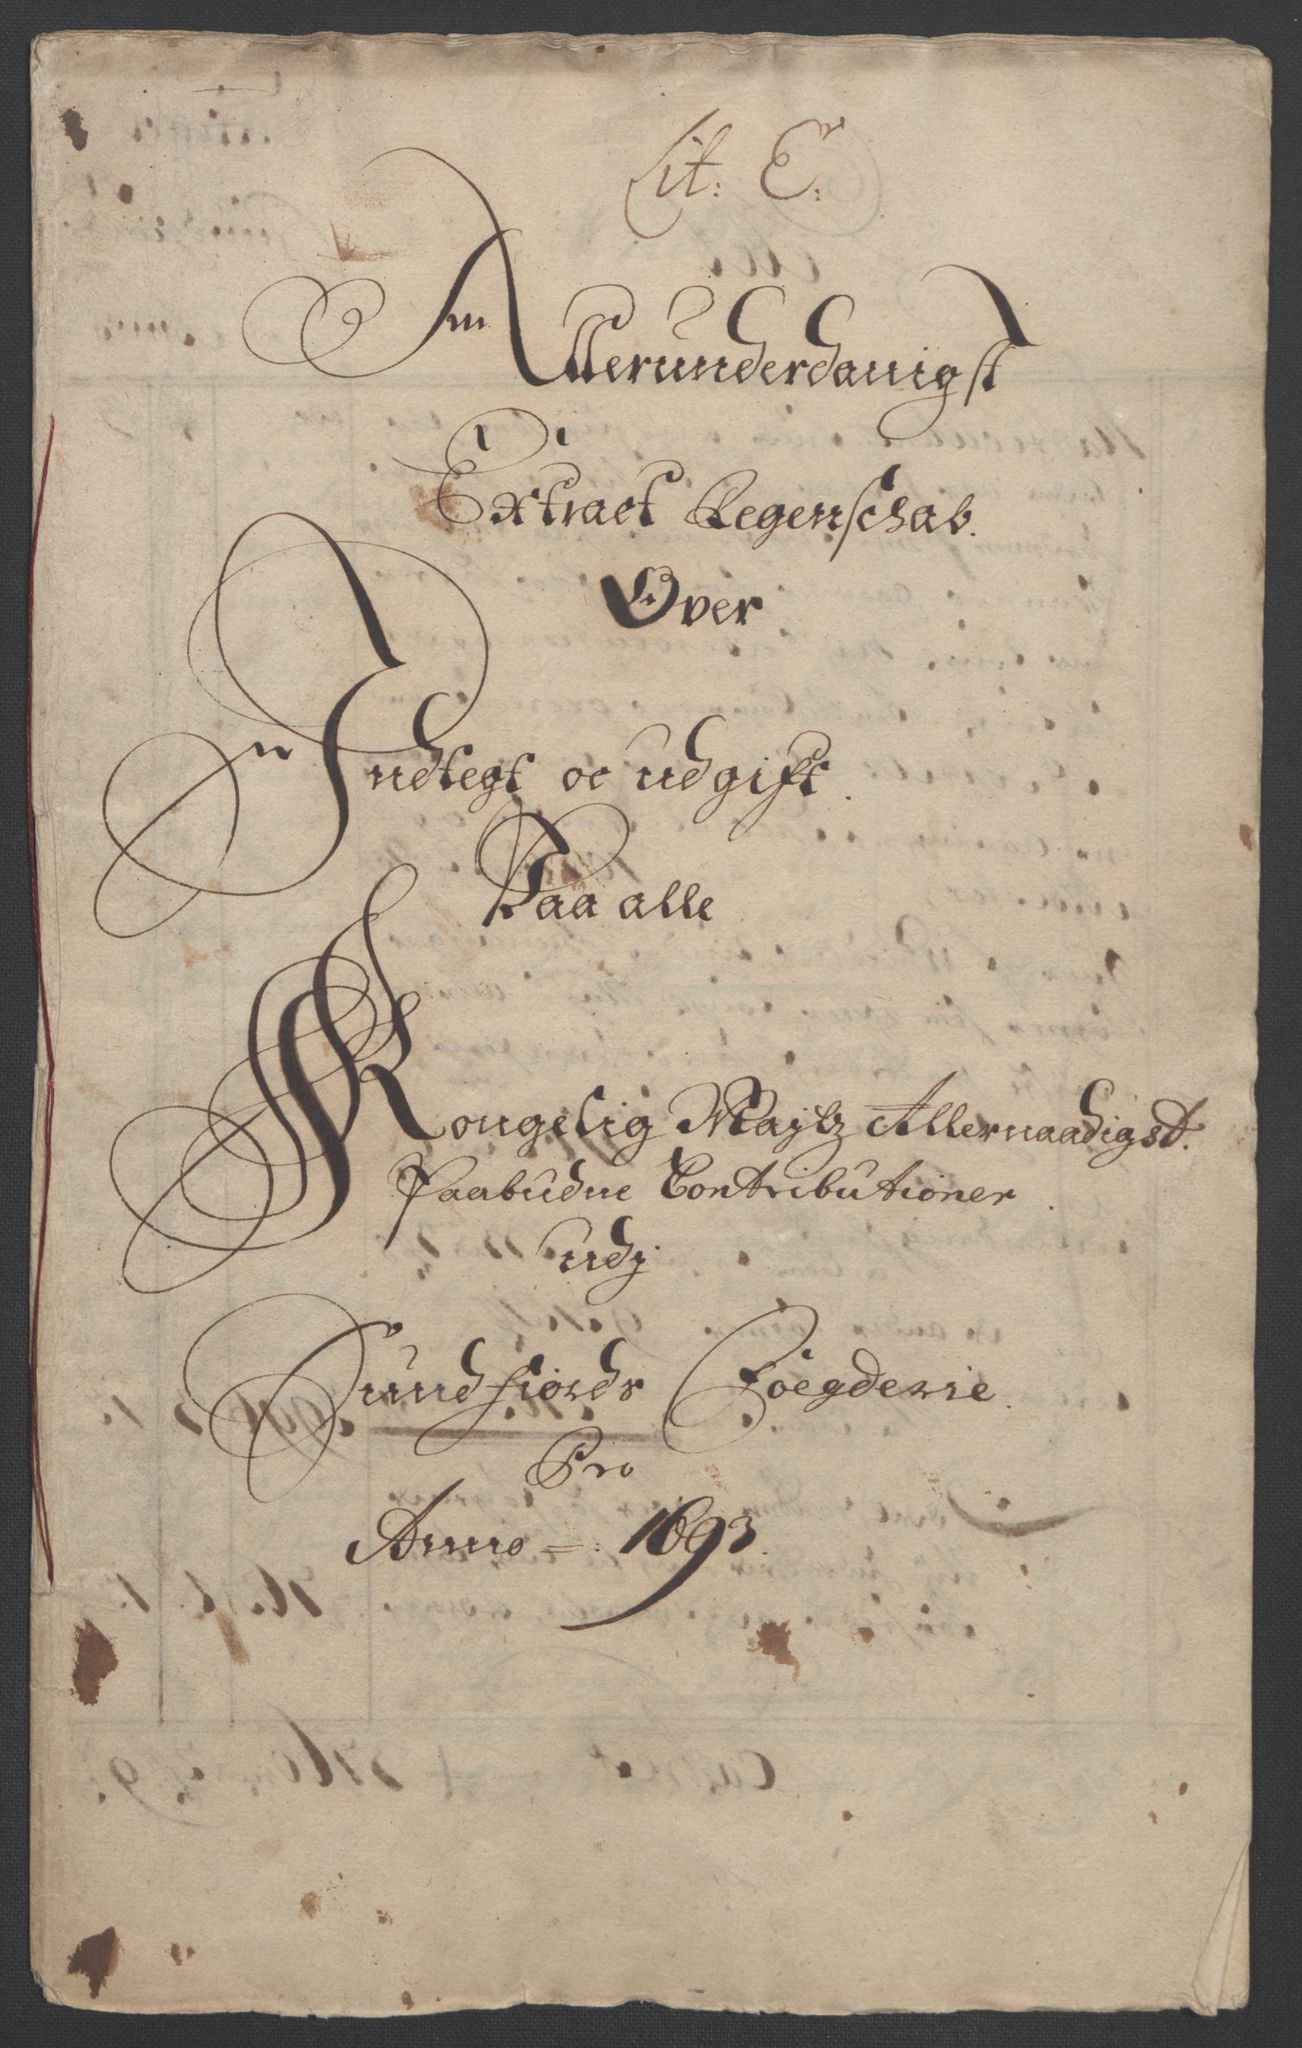 Lit: E:
Allerunderdanigst
Extract Regenschab.
Over
Indtegt oc udgift.
Paa alle
Kongelig Maÿtz Allernaadigst.
Paabudne Contributioner.
udj
Sundfiords Foegderie.
Pro
Anno = : 1693.